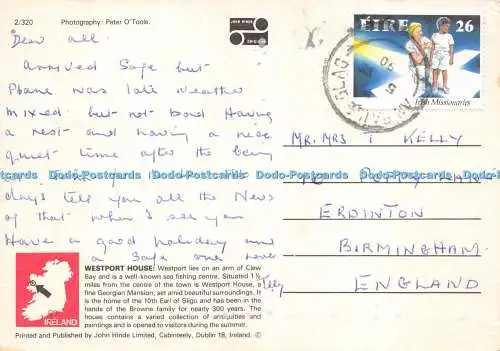 2/320 Photography: Peter O'Toole.
JOHN HINDE
Dear all.
Arrived Safe but
Plane was late weather
mixed but not bad Having
a rest and having a nice
quiet time after the being
days tell you all the News
of that when I see you
Have a good holiday and
a Safe one
WESTPORT HOUSE: Westport lies on an arm of Clew
Bay and is a well-known sea fishing centre. Situated 1½
miles from the centre of the town is Westport House, a
fine Georgian Mansion, set amid beautiful surroundings. It
is the home of the 10th Earl of Sligo and has been in the
hands of the Browne family for nearly 300 years. The
house contains a varied collection of antiquities and
paintings and is opened to visitors during the summer.
IRELAND
Printed and Published by John Hinde Limited, Cabinteely, Dublin 18, Ireland. ©
ÉIRE 26
Irish Missionaries
MR. MRS T KELLY
ERDINTON
BIRMINGHAM
ENGLAND
Dodo-Postcards Dodo-Postcards Dodo-Postcards Dodo-Postcards